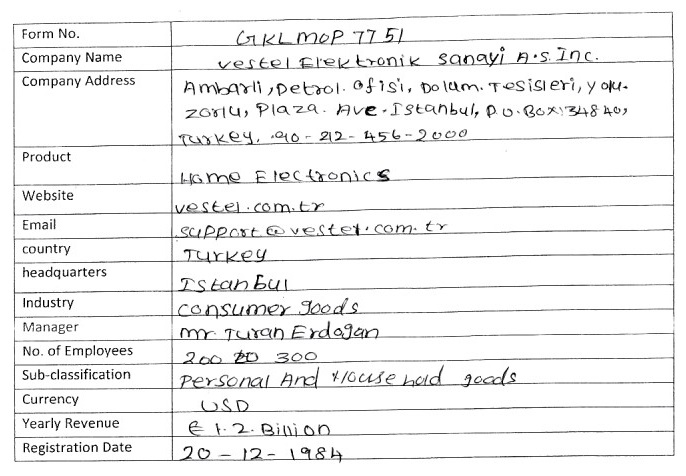 Form No. GKLMOP 7751
Company Name Vestel Elektronik Sanayi A.S. Inc.
Company Address Ambarli, petrol. ofisi, Dolum. Tesisleri, yolu.
zorlu, Plaza. Ave. Istanbul, P.O. Box: 34840,
Turkey. 90-212-456-2000
Product Home Electronics
Website vestel.com.tr
Email support@vestel.com.tr
country Turkey
headquarters Istanbul
Industry consumer goods
Manager mr Turan Erdogan
No. of Employees 200 to 300
Sub-classification Personal And House hold goods
Currency USD
Yearly Revenue € 1.2. Billion
Registration Date 20-12-1984